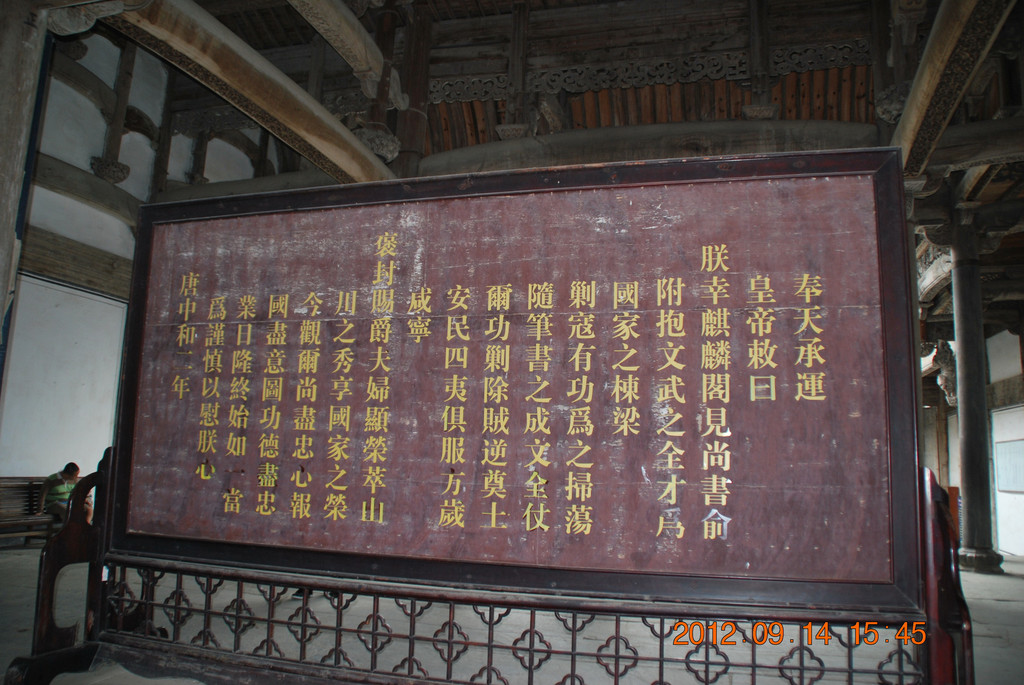 奉天承運
皇帝敕曰
朕幸麒麟閣見尚書俞
附抱文武之全才爲
國家之棟梁
剿寇有功爲之掃蕩
隨筆書之成文全仗
爾功剿除賊逆奠士
安民四夷俱服方歲
咸寧
褒封賜爵夫婦顯榮萃山
川之秀享國家之榮
今觀爾尚盡忠心報
國盡意圖功德盡忠
業日隆終始如一當
爲謹慎以慰朕心
唐中和二年
2012.09.14 15:45